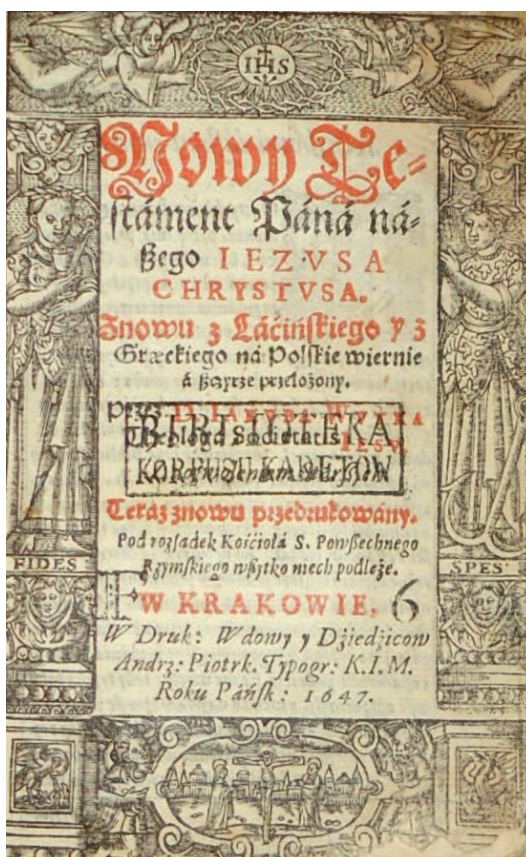 IHS
Nowy Te-
stáment Páná ná-
ßego IEZVSA
CHRYSTVSA.
Znowu z Láćińſkiego y z
Græckiego ná Polſkie wiernie
á ßczyrze przełożony.
przez D. IAKVBA WVYKA
Theologa Societatis IESV.
BIBLIOTEKA
KORPUSU KADETÓW
Teraz znowu przedrukowány.
Pod rozſadek Kośćiołá S. Powßechnego
Rzymſkiego wßytko niech podleże.
FIDES
SPES
W KRAKOWIE,
6
W Druk: Wdowy y Dźiedźicow
Andrz: Piotrk. Typogr: K.I.M.
Roku Páńſk: 1647.